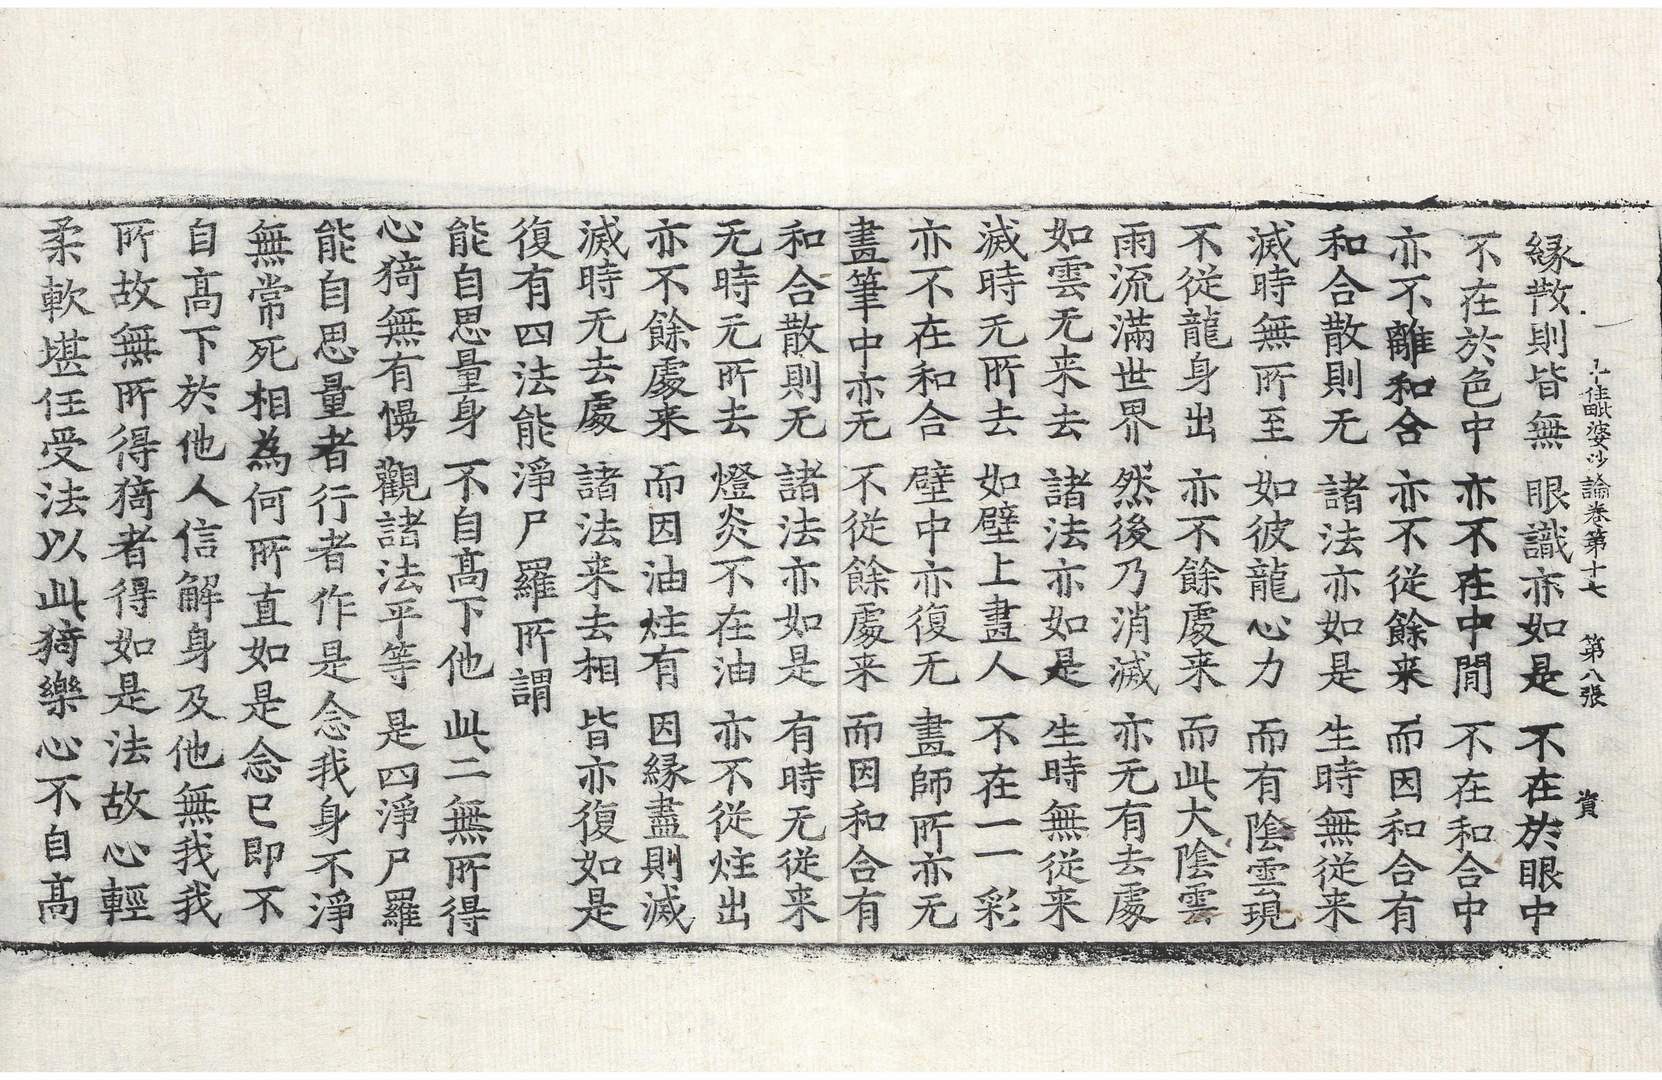 十住毗婆沙論卷第十七 第八張 資
緣散則皆無 眼識亦如是 不在於眼中
不在於色中 亦不在中閒 不在和合中
亦不離和合 亦不從餘来 而因和合有
和合散則无 諸法亦如是 生時無從来
滅時無所至 如彼龍心力 而有陰雲現
不從龍身出 亦不餘處来 而此大陰雲
雨流滿世界 然後乃消滅 亦无有去處
如雲无来去 諸法亦如是 生時無從来
滅時无所去 如壁上畫人 不在一一彩
亦不在和合 壁中亦復无 畫師所亦无
畫筆中亦无 不從餘處来 而因和合有
和合散則无 諸法亦如是 有時无從来
无時无所去 燈炎不在油 亦不從炷出
亦不餘處来 而因油炷有 因緣盡則滅
滅時无去處 諸法来去相 皆亦復如是
復有四法能淨尸羅所謂
能自思量身 不自高下他 此二無所得
心猗無有慢 觀諸法平等 是四淨尸羅
能自思量者行者作是念我身不淨
無常死相為何所直如是念已即不
自高下於他人信解身及他無我我
所故無所得猗者得如是法故心輕
柔軟堪任受法以此猗樂心不自高